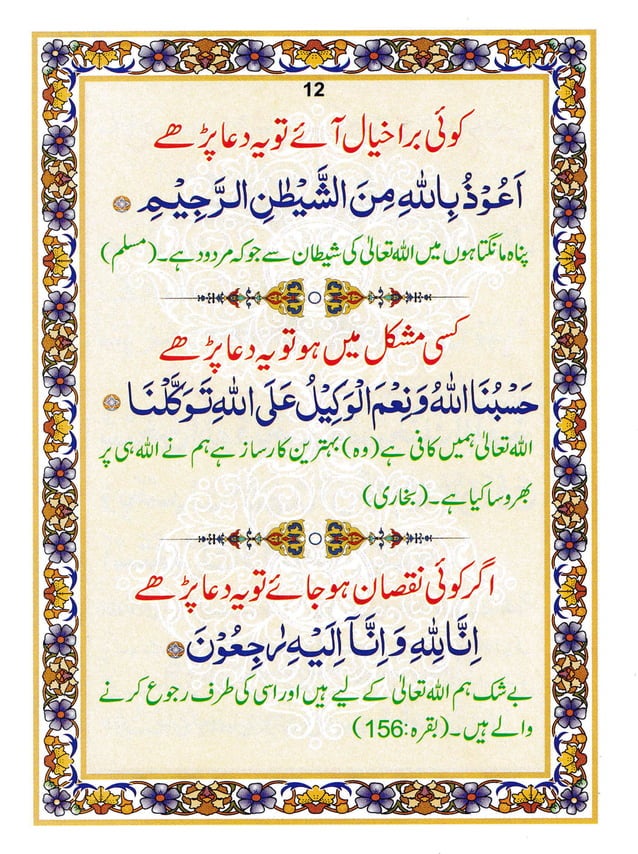 12
کوئی برا خیال آئے تو یہ دعا پڑھے
اَعُوْذُ بِاللّٰهِ مِنَ الشَّيْطٰنِ الرَّجِيْمِ
پناہ مانگتا ہوں میں اللہ تعالیٰ کی شیطان سے جو کہ مردود ہے۔ (مسلم)
کسی مشکل میں ہو تو یہ دعا پڑھے
حَسْبُنَا اللّٰهُ وَنِعْمَ الْوَكِيْلُ عَلَى اللّٰهِ تَوَكَّلْنَا
اللہ تعالیٰ ہمیں کافی ہے (وہ) بہترین کارساز ہے ہم نے اللہ ہی پر
بھروسا کیا ہے۔ (بخاری)
اگر کوئی نقصان ہو جائے تو یہ دعا پڑھے
اِنَّا لِلّٰهِ وَاِنَّآ اِلَيْهِ رٰجِعُوْنَ
بے شک ہم اللہ تعالیٰ کے لیے ہیں اور اسی کی طرف رجوع کرنے
والے ہیں۔ (بقرہ:156)